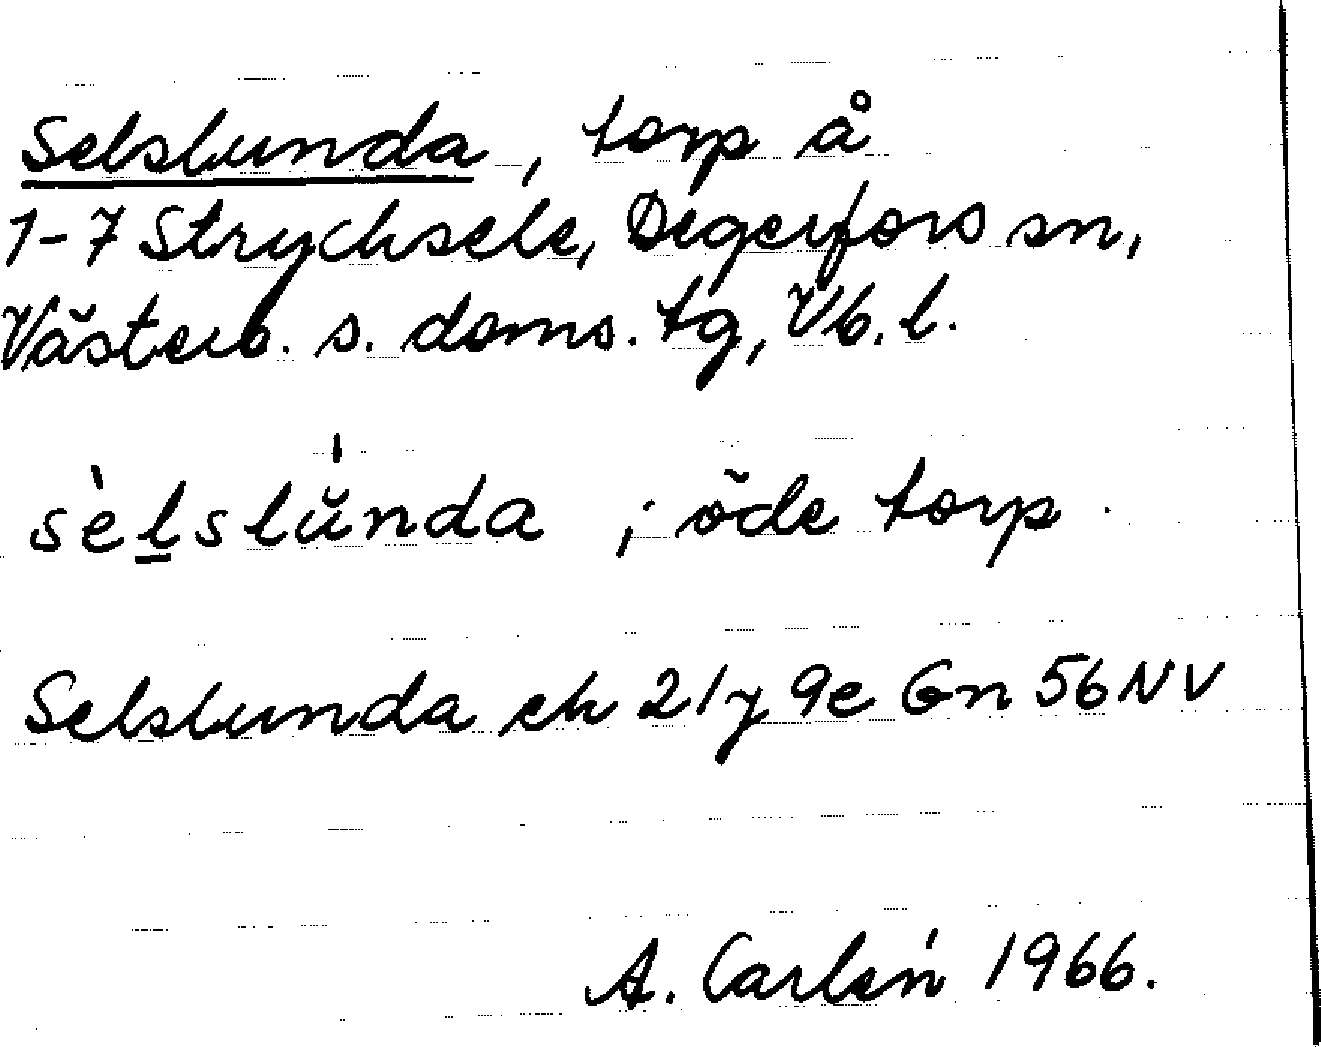 Selslunda, torp å
1-7 Strycksele, Degerfors sn,
Västerb. s. doms. tg, Vb. l.
sèlslúnda ; öde torp.
Selslunda ek 21 y 9e Gn 56 NV
A. Carlén 1966.